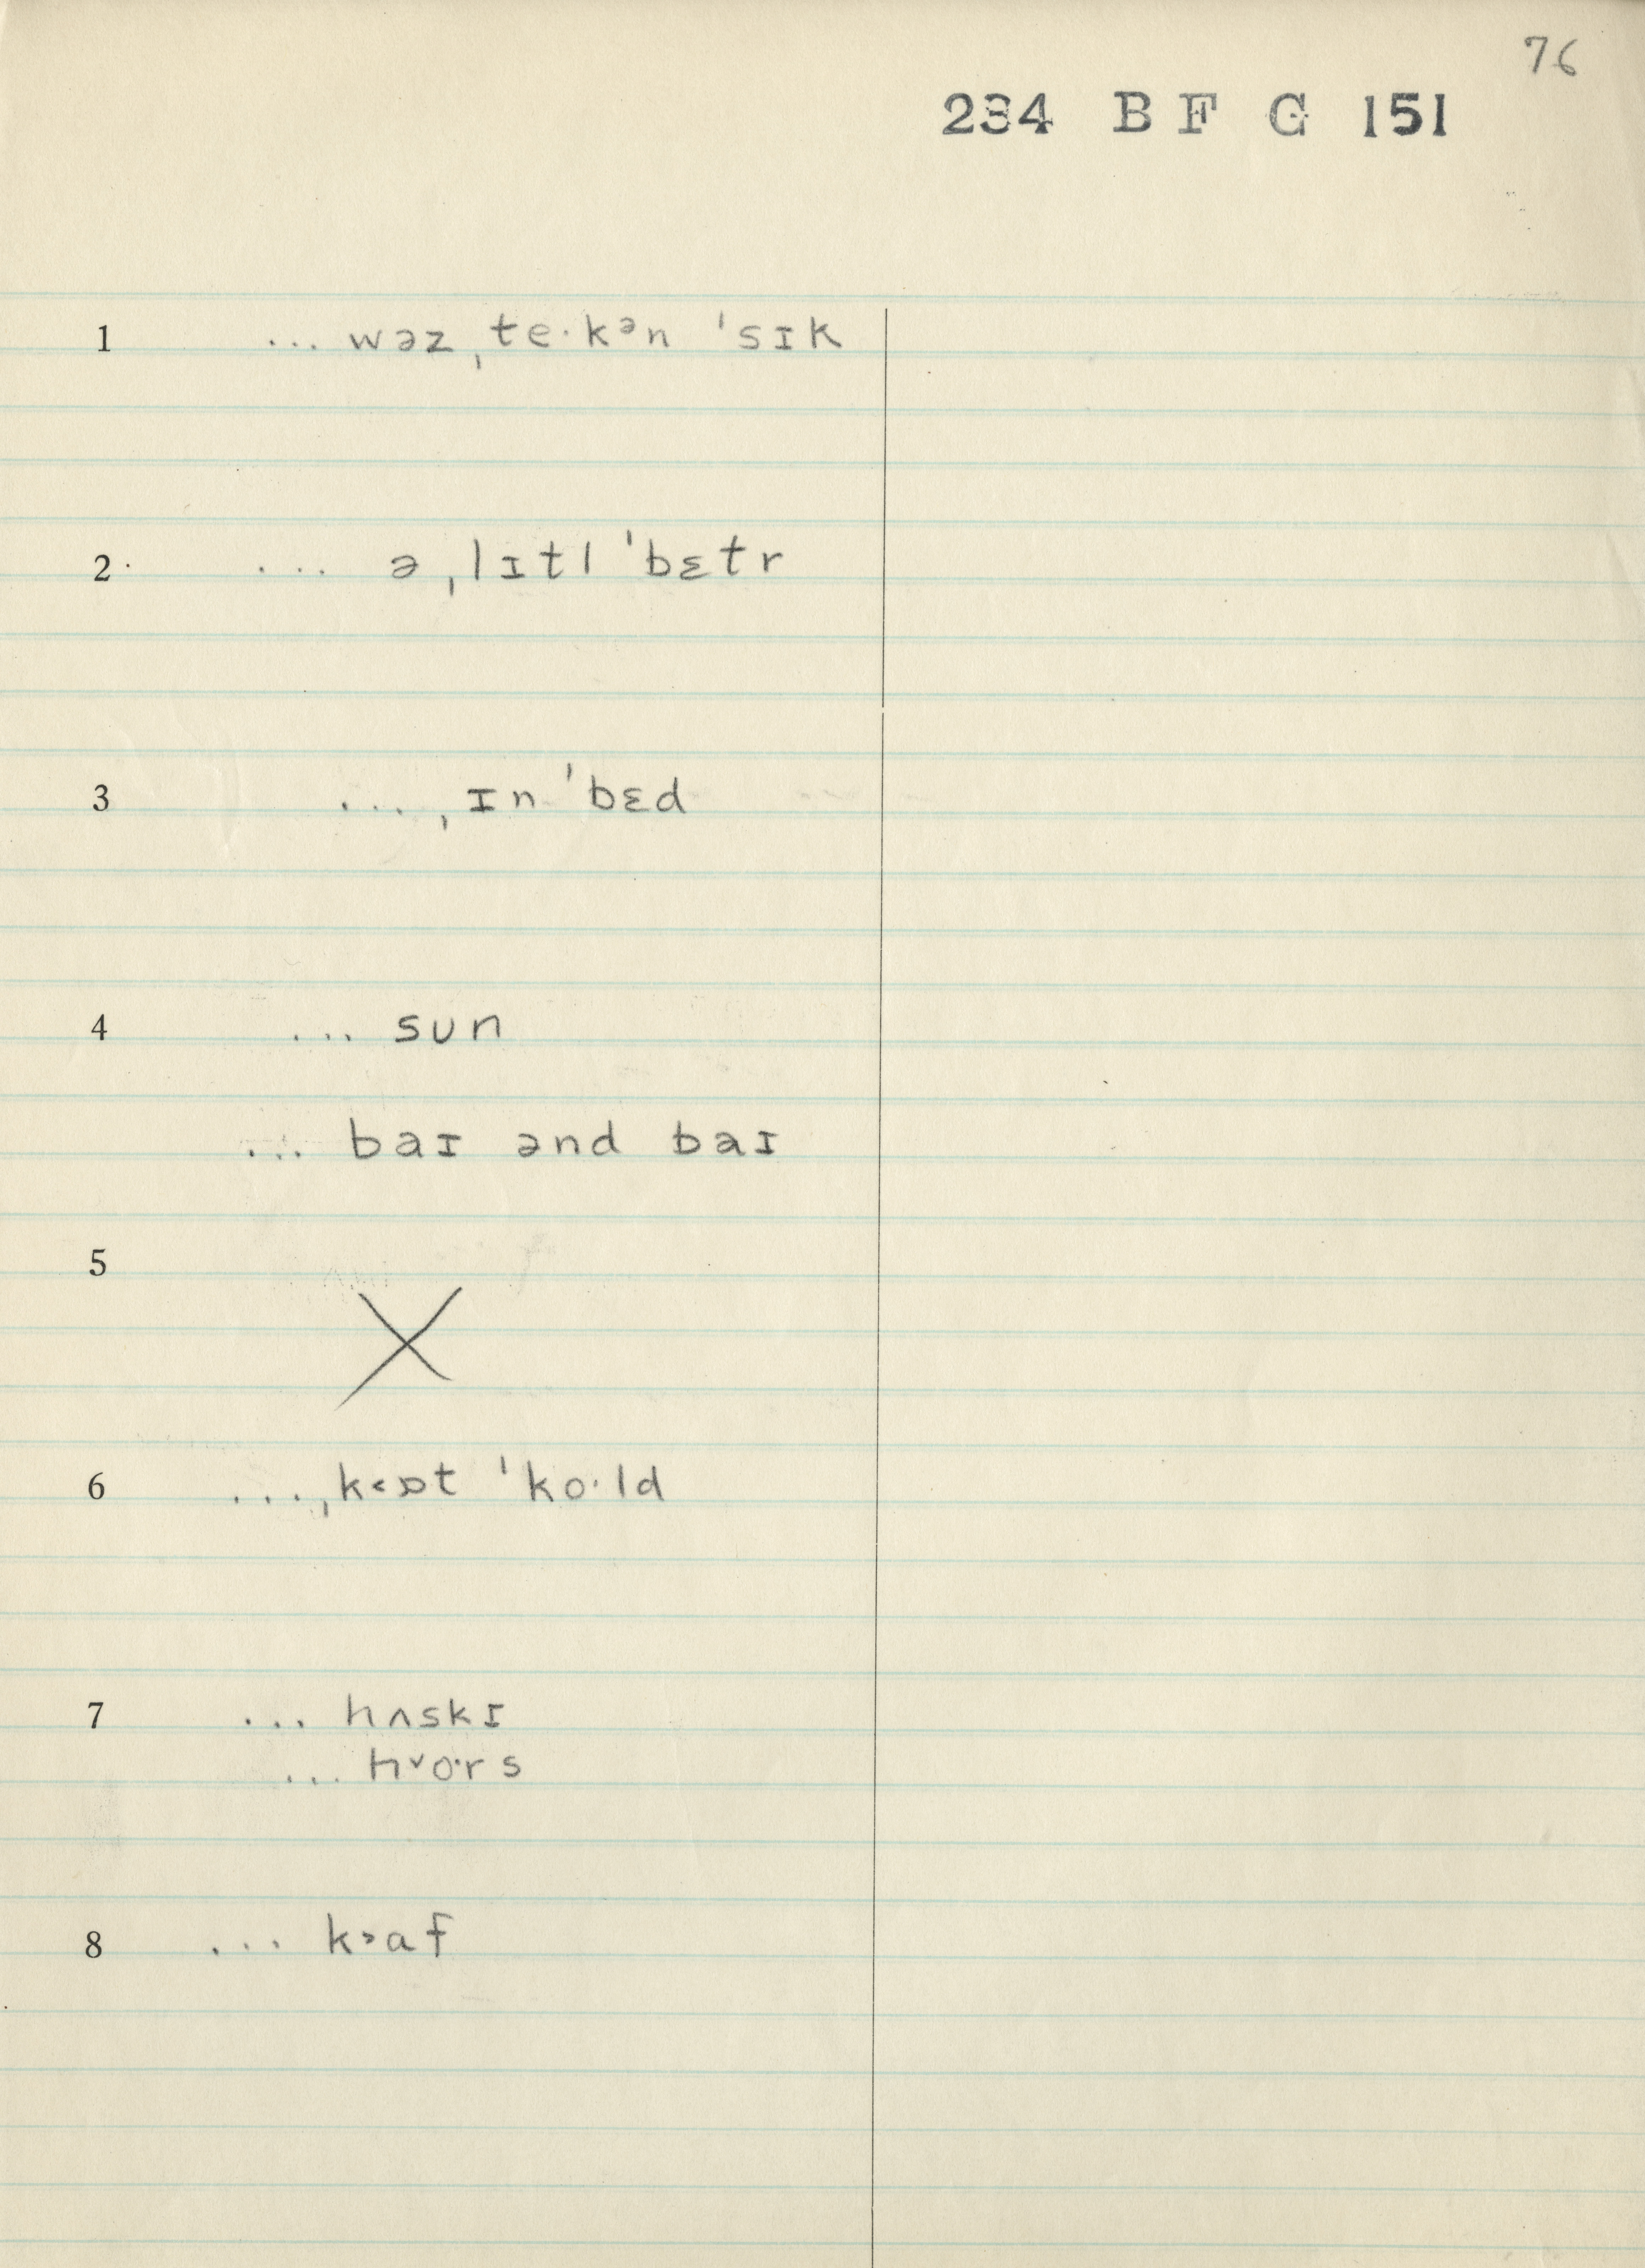 76
234 B F G 151
1 ... wəz ˌte·kᵊn ˈsɪk
2 ... ə ˌlɪtl ˈbɛtr
3 ... ˌɪn ˈbɛd
4 ... sun
... baɪ ənd baɪ
5 X
6 ... ˌk˂ɒt ˈko·ld
7 ... hʌskɪ
... h˅o·rs
8 ... k˃af